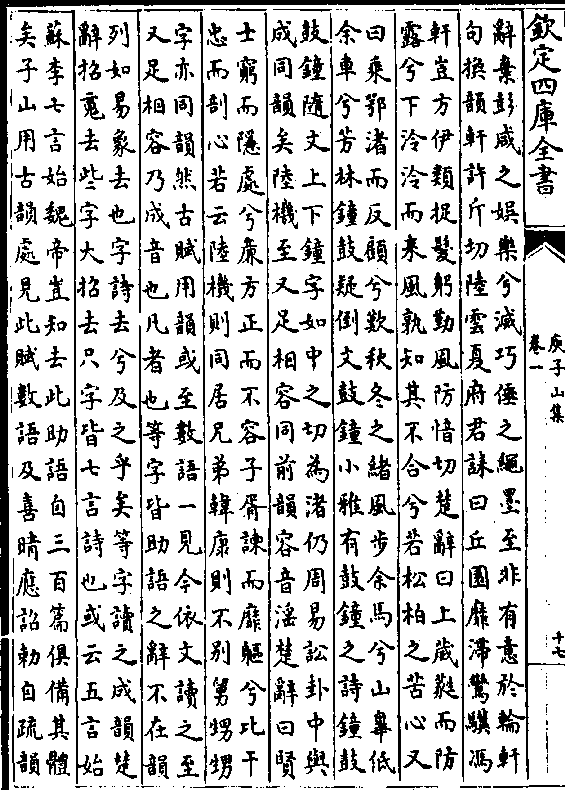 欽定四庫全書
庾子山集
卷一
十七
辭棄彭咸之娛樂兮滅巧倕之繩墨至非有意於輪軒
句換韻軒許斤切陸雲夏府君誄曰丘園靡滯鸞騏馮
軒豈方伊類捉髮躬勤風防愔切楚辭曰上葳蕤而防
露兮下泠泠而來風孰知其不合兮若松柏之苦心又
曰乘鄂渚而反顧兮歎秋冬之緒風步余馬兮山皐低
余車兮芳林鐘鼓疑倒文鼓鐘小雅有鼓鐘之詩鐘鼓
鼓鐘隨文上下鐘字如中之切為渚仍周易訟卦中與
成同韻矣陸機至又足相容同前韻容音淫楚辭曰賢
士窮而隱處兮亷方正而不容子胥諫而靡軀兮比干
忠而剖心若云陸機則同居兄弟韓康則不別舅甥甥
字亦同韻然古賦用韻或至數語一見今依文讀之至
又足相容乃成音也凡者也等字皆助語之辭不在韻
列如易象去也字詩去兮及之乎矣等字讀之成韻楚
辭招䰟去些字大招去只字皆七言詩也或云五言始
蘇李七言始魏帝豈知去此助語自三百篇俱備其體
矣子山用古韻處見此賦數語及喜晴應詔勅自疏韻